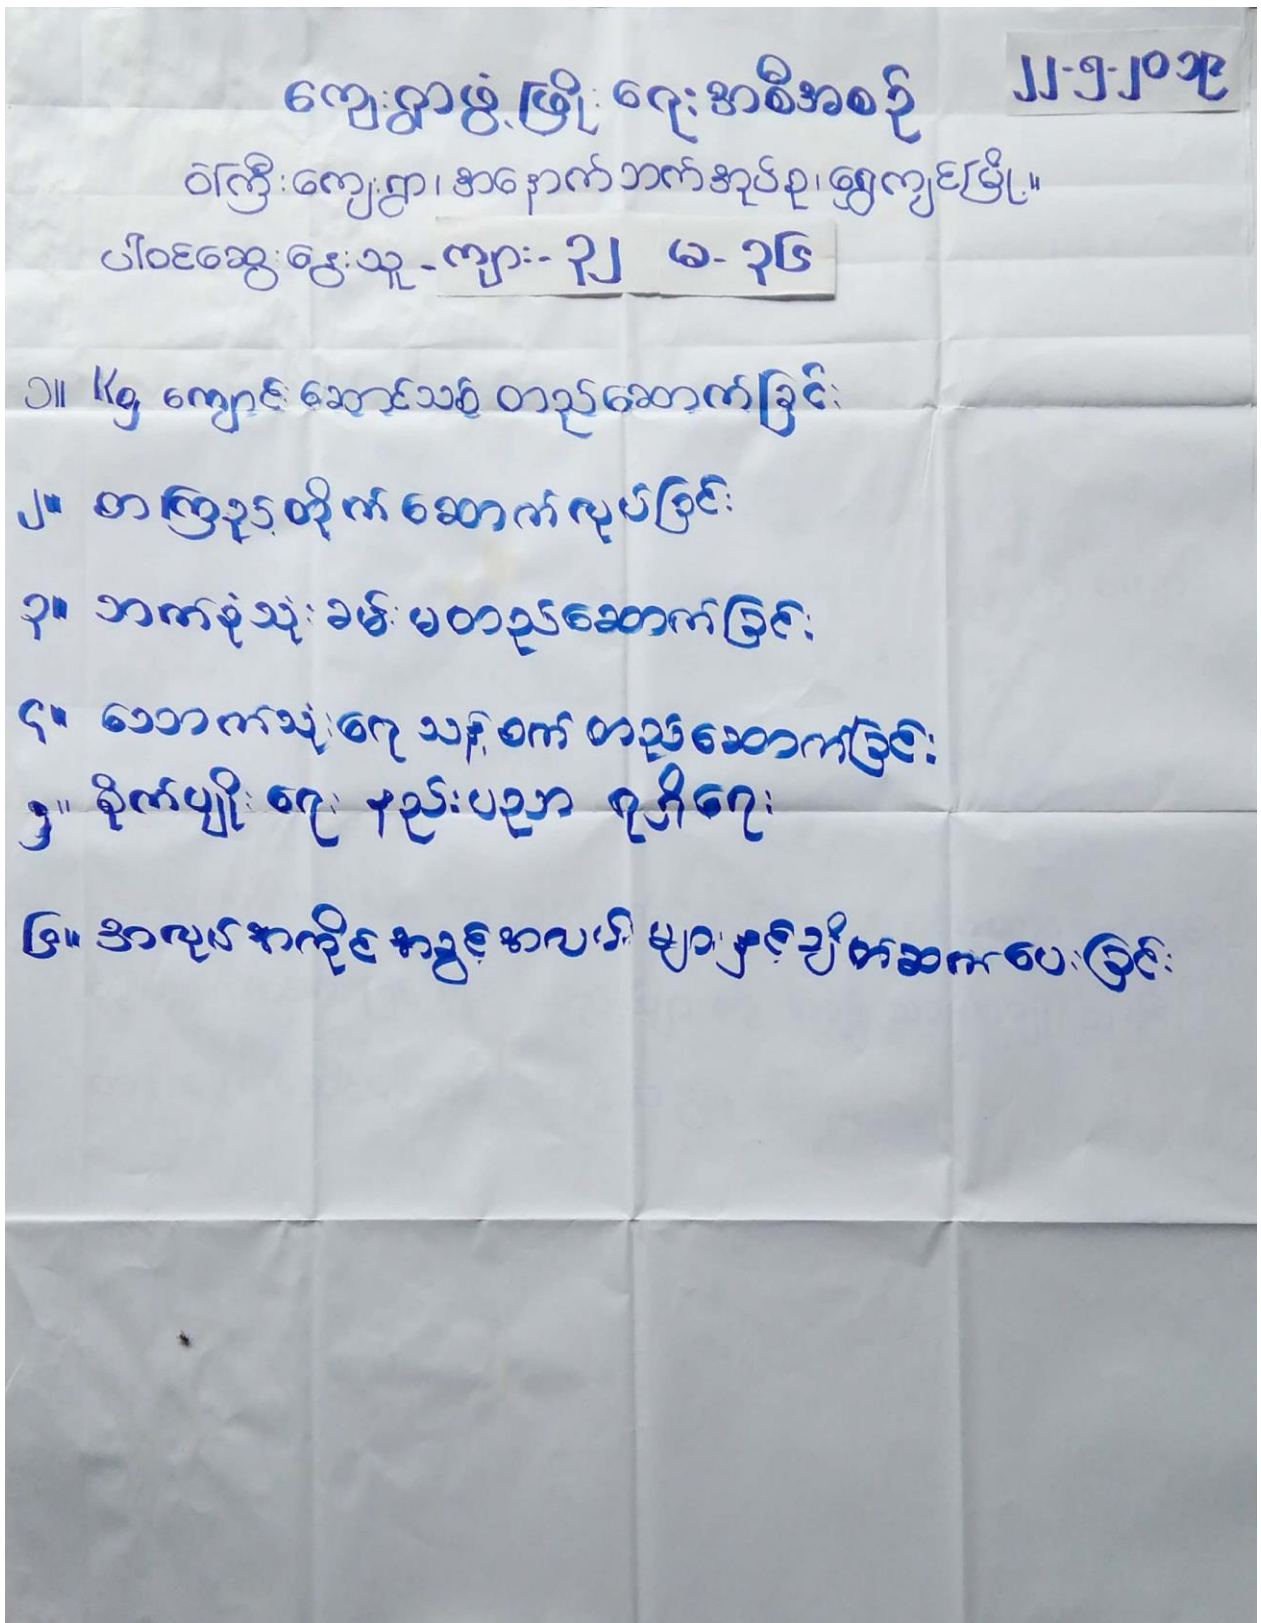 ၂၂-၅-၂၀၁၉
ကျေးရွာဖွံ့ဖြိုးရေးအစီအစဉ်
ဝဲကြီးကျေးရွာ၊ အနောက်ဘက်အုပ်စု၊ ရွှေကျင်မြို့။
ပါဝင်ဆွေးနွေးသူ - ကျား - ၃၂ မ - ၃၆
၁။ Kg ကျောင်းဆောင်သစ် တည်ဆောက်ခြင်း
၂။ စာကြည့်တိုက် ဆောက်လုပ်ခြင်း
၃။ ဘက်စုံသုံးခမ်းမတည်ဆောက်ခြင်း
၄။ သောက်သုံးရေ သန့်စက် တည်ဆောက်ခြင်း
၅။ စိုက်ပျိုးရေး နည်းပညာ ရရှိရေး
၆။ အလုပ်အကိုင်အခွင့်အလမ်းများနှင့်ချိတ်ဆက်ပေးခြင်း